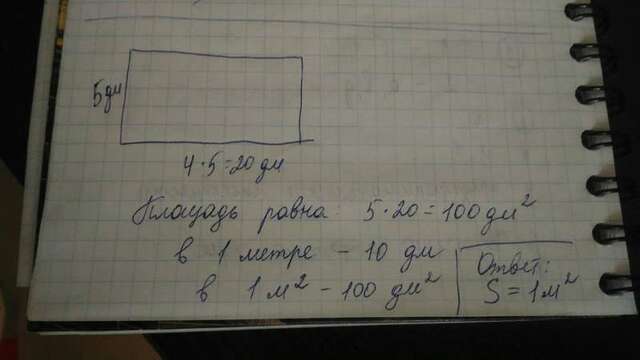 5 дм
4·5=20 дм
Площадь равна: 5·20=100 дм²
в 1 метре - 10 дм
в 1 м² - 100 дм²
Ответ:
S = 1 м²